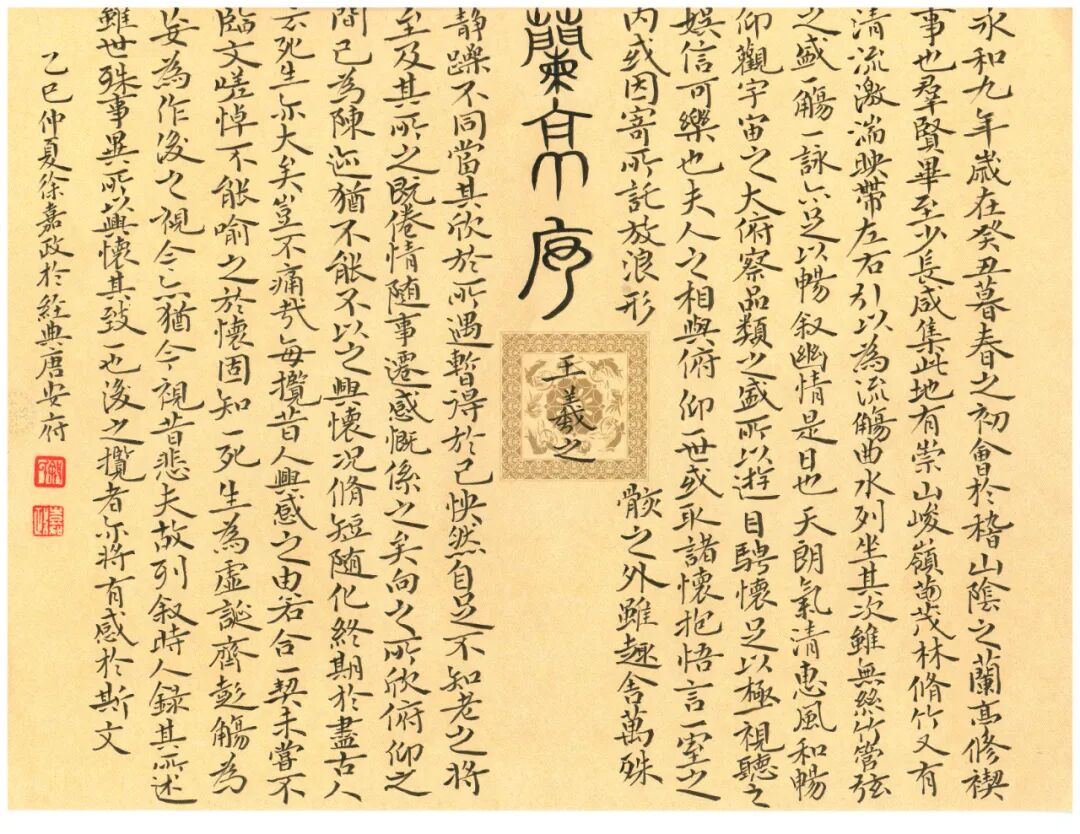 永和九年歲在癸丑暮春之初會於稽山陰之蘭亭修禊
事也羣賢畢至少長咸集此地有崇山峻嶺茂林脩竹又有
清流激湍映帶左右引以為流觴曲水列坐其次雖無絲竹管弦
之盛一觴一詠亦足以暢叙幽情是日也天朗氣清惠風和暢
仰觀宇宙之大俯察品類之盛所以遊目騁懷足以極視聽之
娛信可樂也夫人之相與俯仰一世或取諸懷抱悟言一室之
内或因寄所託放浪形
骸之外雖趣舍萬殊
蘭亭序
王羲之
静躁不同當其欣於所遇暫得於己怏然自足不知老之將
至及其所之既倦情随事遷感慨係之矣向之所欣俯仰之
間已為陳迹猶不能不以之興懷况脩短随化終期於盡古人
云死生亦大矣豈不痛哉每攬昔人興感之由若合一契未嘗不
臨文嗟悼不能喻之於懷固知一死生為虛誕齊彭觴為
妄為作後之視今亦猶今視昔悲夫故列叙時人録其所述
雖世殊事異所以興懷其致一也後之攬者亦將有感於斯文
乙巳仲夏徐嘉政於經典唐安府